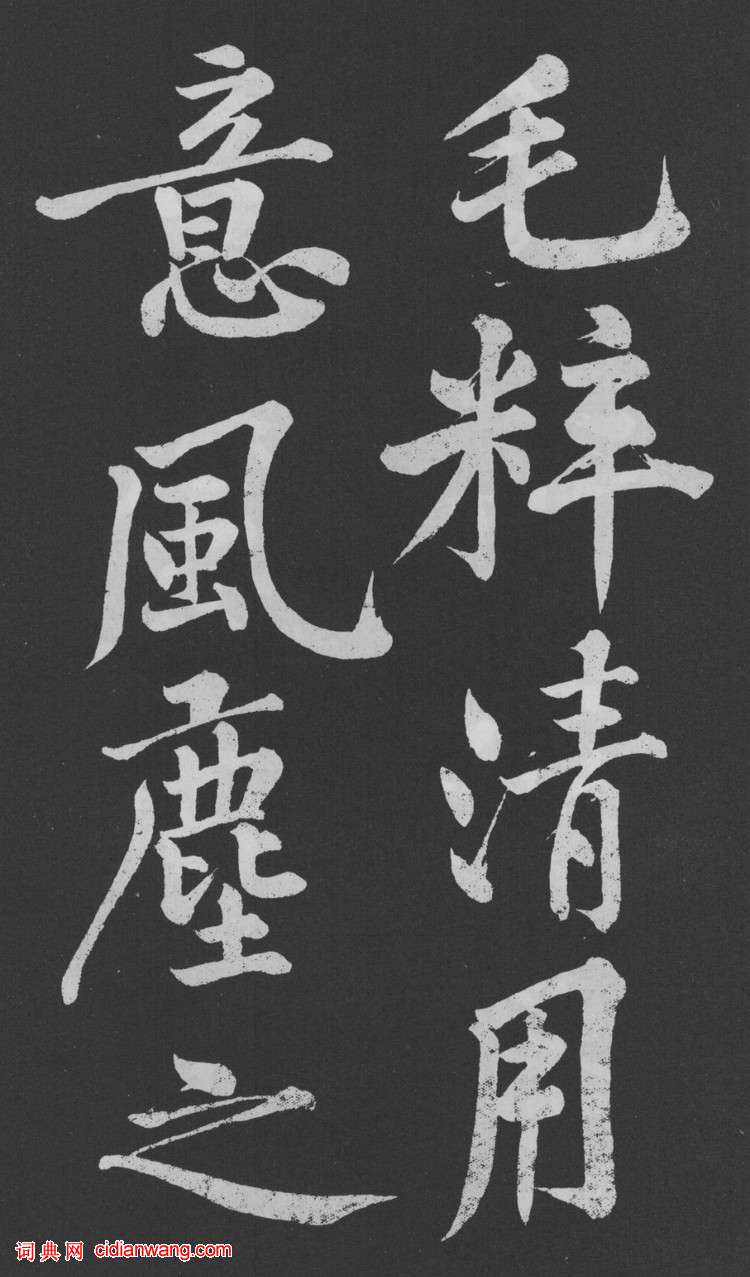 毛粹清用
意風塵之
词典网 cidianwang.com